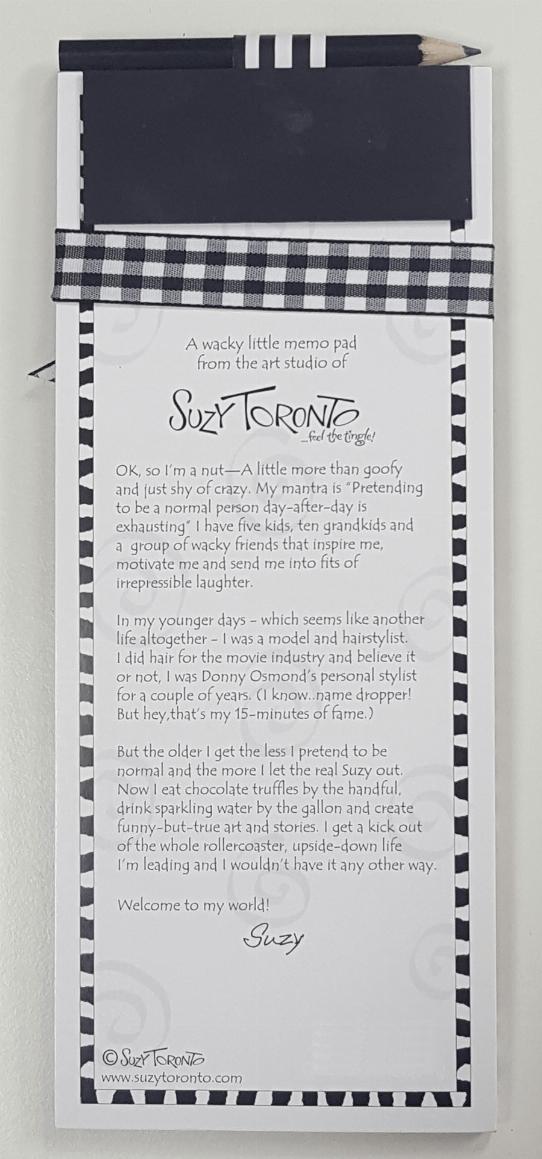 A wacky little memo pad
from the art studio of
SUZY TORONTO
...feel the tingle!
OK, so I'm a nut—A little more than goofy
and just shy of crazy. My mantra is "Pretending
to be a normal person day-after-day is
exhausting" I have five kids, ten grandkids and
a group of wacky friends that inspire me,
motivate me and send me into fits of
irrepressible laughter.
In my younger days - which seems like another
life altogether - I was a model and hairstylist.
I did hair for the movie industry and believe it
or not, I was Donny Osmond's personal stylist
for a couple of years. (I know..name dropper!
But hey,that's my 15-minutes of fame.)
But the older I get the less I pretend to be
normal and the more I let the real Suzy out.
Now I eat chocolate truffles by the handful,
drink sparkling water by the gallon and create
funny-but-true art and stories. I get a kick out
of the whole rollercoaster, upside-down life
I'm leading and I wouldn't have it any other way.
Welcome to my world!
Suzy
© SUZY TORONTO
www.suzytoronto.com